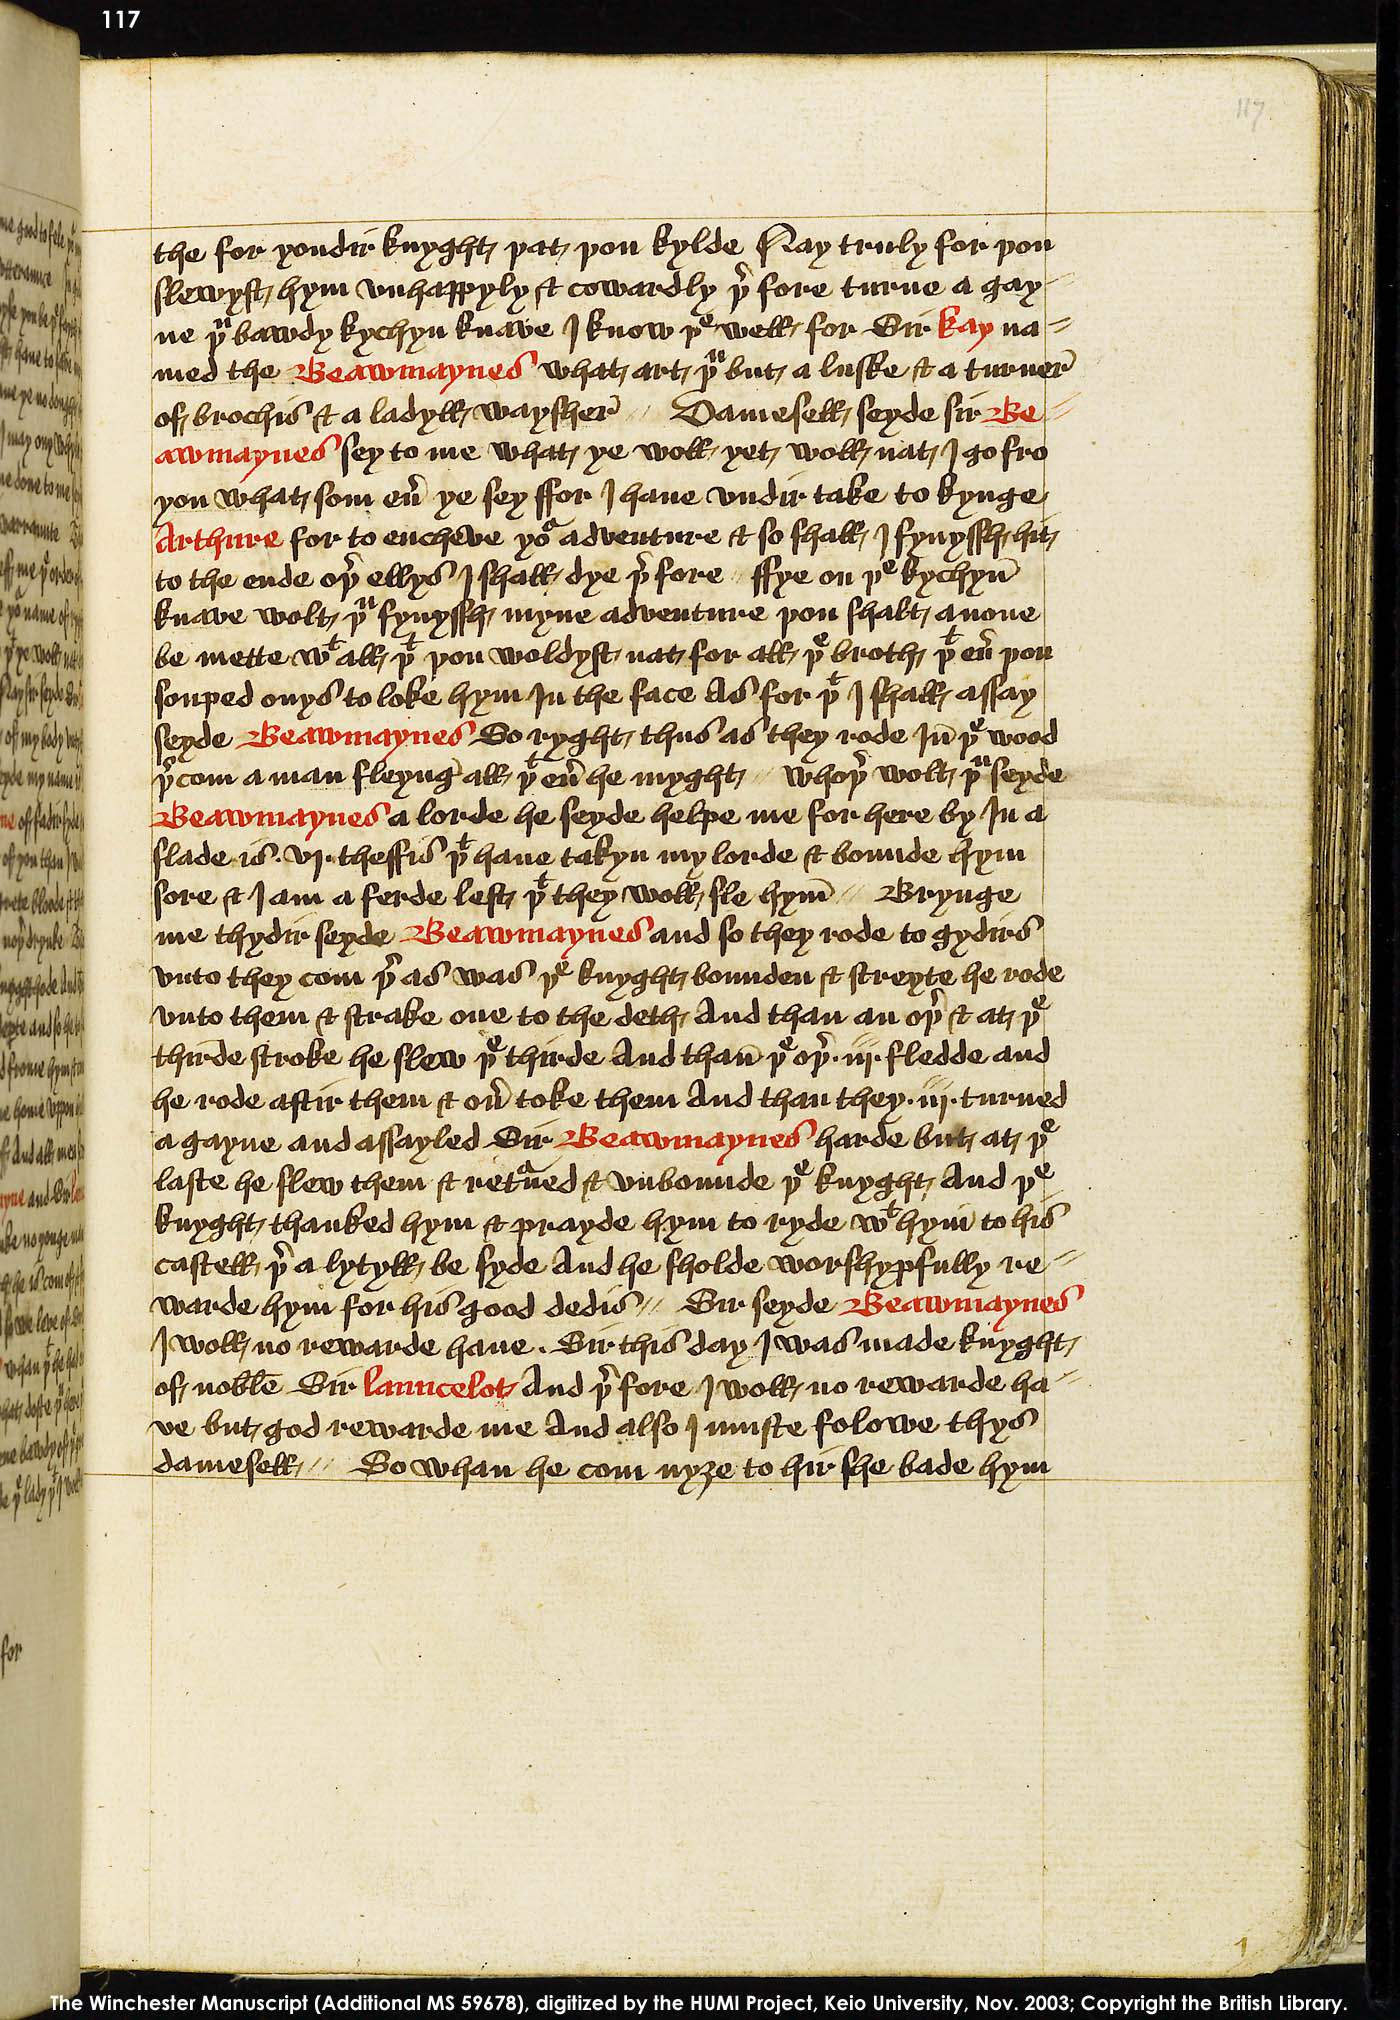 117
117
the for yondir knyght þat þou kylde Nay truly for þou
slewyst hym vnhappyly & cowardly þ̉ fore turne a gay-
ne þᵘ bawdy kychyn knave I know þᵉ well for Sir kay na-
med the Beawmaynes what art þᵘ but a luske & a turner
of brochis & a ladyll waysher // Damesell seyde sir Be-
awmaynes sey to me what ye woll yet woll nat I go fro
you what som eủ ye sey ffor I haue vndir take to kynge
Arthure for to encheve yoᵘ adventure & so shall I fynyssh hit
to the ende oþ̉ ellys I shall dye þ̉ fore // ffye on þᵉ kychyn̄
knave wolt þᵘ fynyssh myne adventure þou shalt anone
be mette wᵗ all þᵗ þou woldyst nat for all þᵉ broth þᵗ eủ þou
souped onys to loke hym In the face As for þᵗ I shall assay
seyde Beawmaynes So ryght thus as they rode In̄ þᵉ wood
þ̉ com a man fleyng all þᵗ eủ he myght // whoþ̉ wolt þᵘ seyde
Beawmaynes a lorde he seyde helpe me for here by In a
slade is .vj. theffis þᵗ haue takyn my lorde & bounde hym
sore & I am a ferde lest þᵗ they woll sle hym̄ // Brynge
me thydir seyde Beawmaynes and so they rode to gydirs
vnto they com þ̉ as was þᵉ knyght bounden & streyte he rode
vnto them & strake one to the deth And than an oþ̉ & at þᵉ
thirde stroke he slew þᵉ thirde And than̄ þᵉ oþ̉ .iij. fledde and
he rode aftir them & oủ toke them And than they .iij. turned
a gayne and assayled Sir Beawmaynes harde but at þᵉ
laste he slew them & retᵃned & vnbounde þᵉ knyght And þᵉ
knyght thanked hym & prayde hym to ryde wᵗ hym̄ to his
castell þ̉ a lytyll be syde And he sholde worshypfully re-
warde hym for his good dedis // Sir seyde Beawmaynes
I woll no rewarde haue . Sir this day I was made knyght
of noble Sir launcelot And þ̉ fore I woll no rewarde ha-
ve but god rewarde me And also I muste folowe thys
damesell // So whan he com nyȝe to hir she bade hym
for
1
The Winchester Manuscript (Additional MS 59678), digitized by the HUMI Project, Keio University, Nov. 2003; Copyright the British Library.